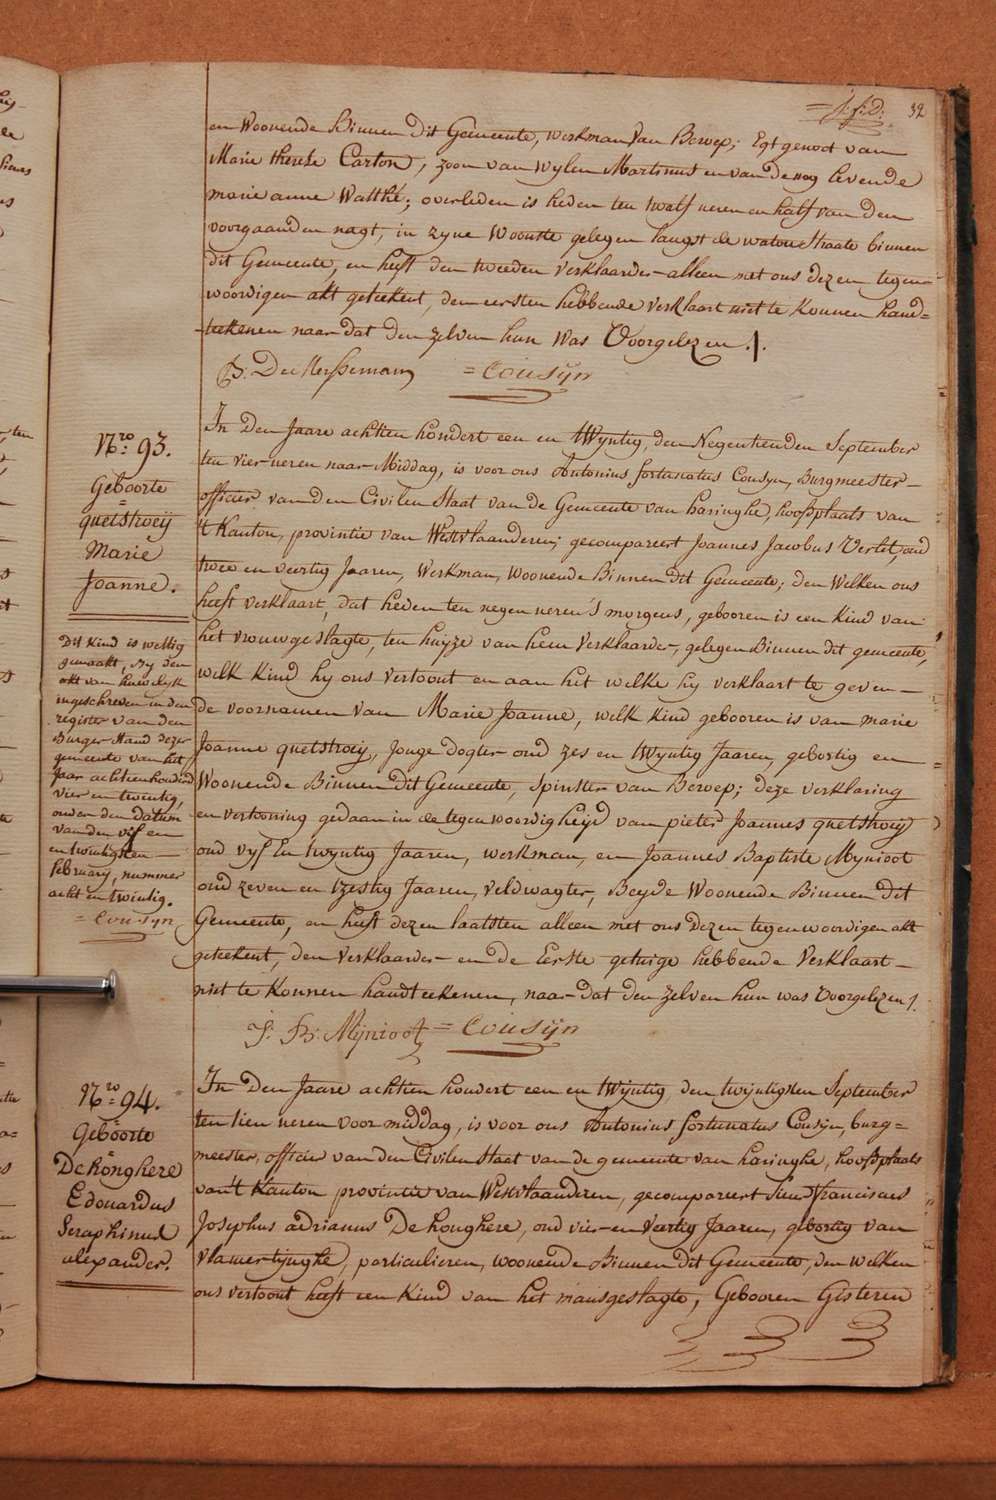 32
en Woonende Binnen Dit Gemeente, werkman van Beroep; Egtgenoot van
Marie therese Carton, zoon van wylen Martinus en van de nog levende
marie anne Watthé; overleden is heden ten twalf ueren en half van den
voorgaanden nagt, in zyne Woonste gelegen langst de watou Straate binnen
dit Gemeente, en heeft den tweeden verklaarder alleen met ons dezen tegen-
woordigen akt geteekent, den eersten hebbende verklaart niet te konnen hand=
teekenen naar dat den zelven hun Was Voorgelezen ./.
=Cousyn
Nro. 93.
Geboorte
=
quetstroeij
Marie
Joanne.
Dit kind is wettig
gemaakt, by den
akt van huwelyk
ingeschreven in den
register van den
Burger Stand dezer
gemeente van het
Jaar achtienhonderd
vier en twintig,
onder den datum
van den vyf en
en twintigsten
february, nummer
acht en twintig.
=Cousyn
In Den Jaare achtien hondert een en tWyntig, den Negentienden September
ten vier ueren naar Middag, is voor ons Antonius fortunatus Cousyn, Burgmeester
officier van den Civilen Staat van de Gemeente van haringhe, hoofsplaats van
't Kanton, provintie van Westvlaanderen; gecompareert Joannes Jacobus Verlet, oud
twee en veertig Jaaren, Werkman, woonende Binnen dit Gemeente; den Welken ons
heeft verklaart, dat heden ten negen ueren 's morgens, gebooren is een kind van
het vrouwgeslagte, ten huyze van hem Verklaarder, gelegen Binnen dit gemeente,
welk kind hy ons vertoont en aan het welke hy verklaart te geven
de voornamen van Marie Joanne, welk kind gebooren is van marie
Joanne quetstroeij, Jonge dogter oud zes en tWyntig Jaaren, gebortig en
Woonende Binnen Dit Gemeente, Spinster van Beroep; deze verklaring
en vertooning gedaan in de tegenwoordigheyd van pieter Joannes quetstroeij
oud vyf En twyntig Jaaren, werkman, en Joannes Baptiste Mynioot
oud zeven en tzestig Jaaren, Veldwagter, Beyde Woonende Binnen Dit
Gemeente, en heeft dezen laatsten alleen met ons Dezen tegenwoordigen akt
geteekent, den Verklaarder en De Eerste getuige hebbende Verklaart
niet te Konnen handteekenen, naar Dat den zelven hun was Voorgelezen /.
J: B: Mijnioot =Cousyn
Nro. 94.
Geboorte
=
De honghere
Edouardus
Seraphinus
alexander.
In Den Jaare achtien hondert een en tWyntig, den twyntigsten September
ten tien ueren voor middag, is voor ons Antonius fortunatus Cousyn, burg=
meester, officier van den Civilen Staat van de gemeente van haringhe, hoofsplaats
van't Kanton provintie van Westvlaanderen, gecompareert Sieur franciscus
Josephus adrianus De honghere, oud vier en Vertig Jaaren, gebortig van
vlamertynghe, particulieren, woonende Binnen Dit Gemeente, den welken
ons vertoont heeft een Kind van het mansgeslagte, Gebooren Gisteren